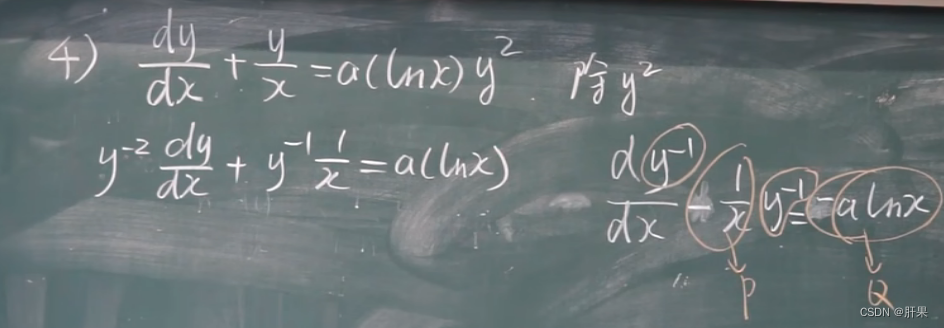 4) dy/dx + y/x = a(lnx)y² 除y²
y⁻² dy/dx + y⁻¹ 1/x = a(lnx)
d y⁻¹/dx - 1/x y⁻¹ = -alnx
P Q
CSDN @肝果